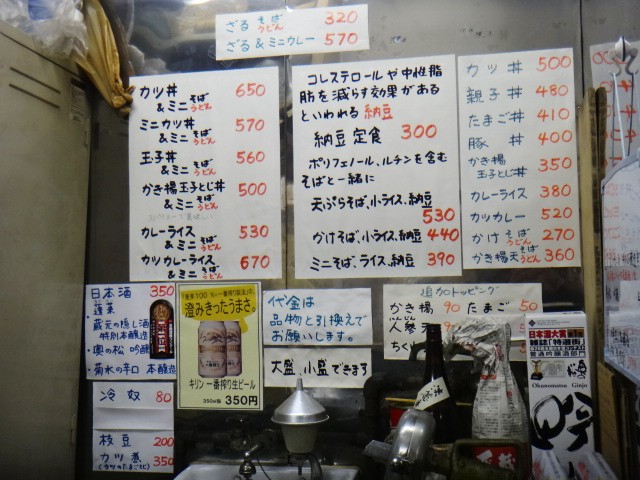 ざる そば うどん 320
ざる & ミニカレー 570
カツ丼 & ミニ そば うどん 650
ミニカツ丼 & ミニ そば うどん 570
玉子丼 & ミニ そば うどん 560
かき揚玉子とじ丼 & ミニ そば うどん 500
カレーライス & ミニ そば うどん 530
カツカレーライス & ミニ そば うどん 670
コレステロールや中性脂
肪を減らす効果がある
といわれる 納豆
納豆定食 300
ポリフェノール、ルチンを含む
そばと一緒に
天ぷらそば、小ライス、納豆
530
かけそば、小ライス、納豆 440
ミニそば、ライス、納豆 390
カツ丼 500
親子丼 480
たまご丼 410
豚丼 400
かき揚玉子とじ丼 350
カレーライス 380
カツカレー 520
かけ そば うどん 270
かき揚天 そば うどん 360
日本酒 350
蓬莱
・蔵元の隠し酒
特別本醸造
・奥の松 吟醸
菊水の辛口 本醸造
冷奴 80
枝豆 200
カツ煮 350
(カツのたまごとじ)
澄みきったうまさ。
キリン一番搾り生ビール
350ml缶 350円
代金は
品物と引換えで
お願いします。
大盛、小盛できます
追加トッピング
かき揚 90 たまご 50
人参天
ちく
日本酒大賞
雑誌「特選街」
普通吟醸酒部門
奥の松
Okunomatsu Ginjo
吟